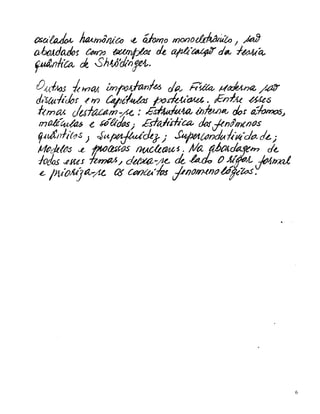 oscilador harmônico e átomo monoeletrônico, são
abordados como exemplos de aplicação da teoria
quântica de Shrödinger.
Outros temas importantes da Física Moderna são
discutidos em Capítulos posteriores. Entre esses
temas destacam-se: Estrutura interna dos átomos,
moléculas e sólidos; Estatística dos fenômenos
quânticos; Superfluidez; Supercondutividade;
Modelos e processos nucleares. Na abordagem de
todos esses temas, deixa-se de lado o rigor formal
e prioriza-se os conceitos fenomenológicos.
6